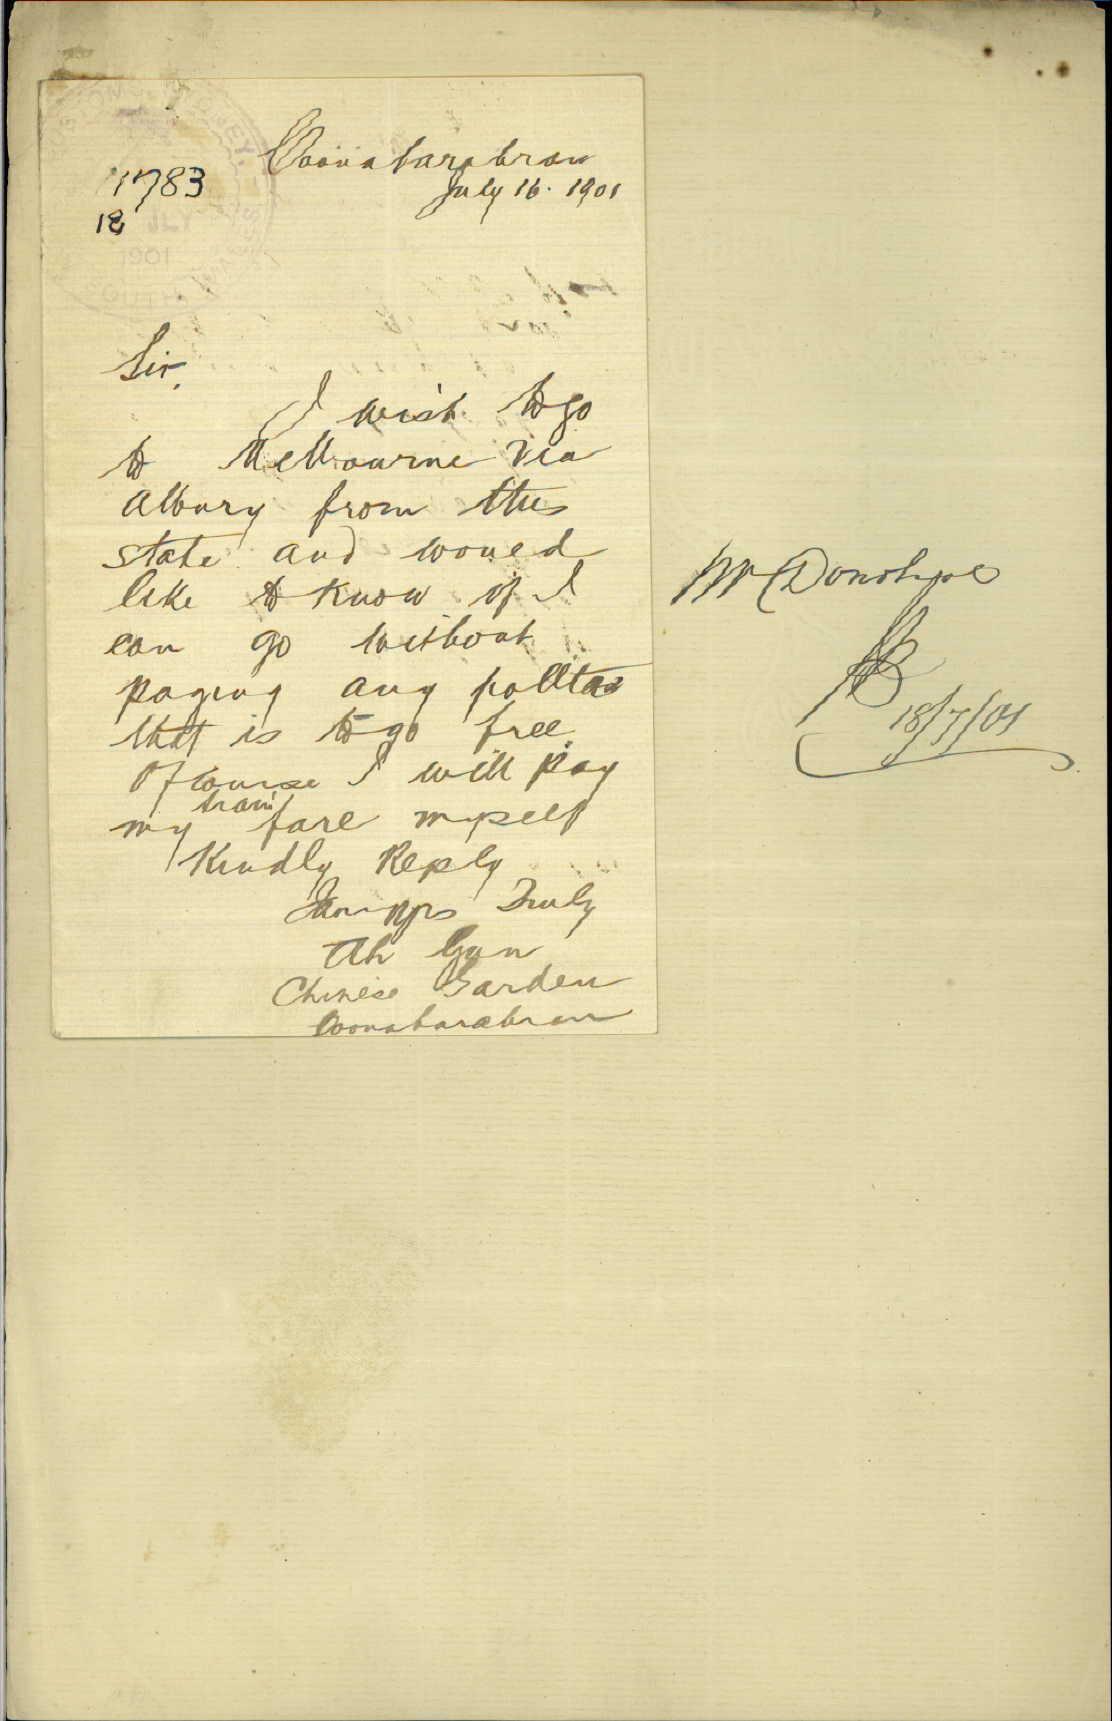 Coonabarabran
July 16. 1901
11783
18
JLY
1901
SOUTH
Sir,
I wish to go
to Melbourne via
Albury from this
state and would
like to know if I
can go without
paying any polltax
that is to go free.
Of course I will pay
my train fare myself
Kindly Reply
Yrs Truly
Ah Gun
Chinese Garden
Coonabarabran
Mr Donohoe
18/7/01